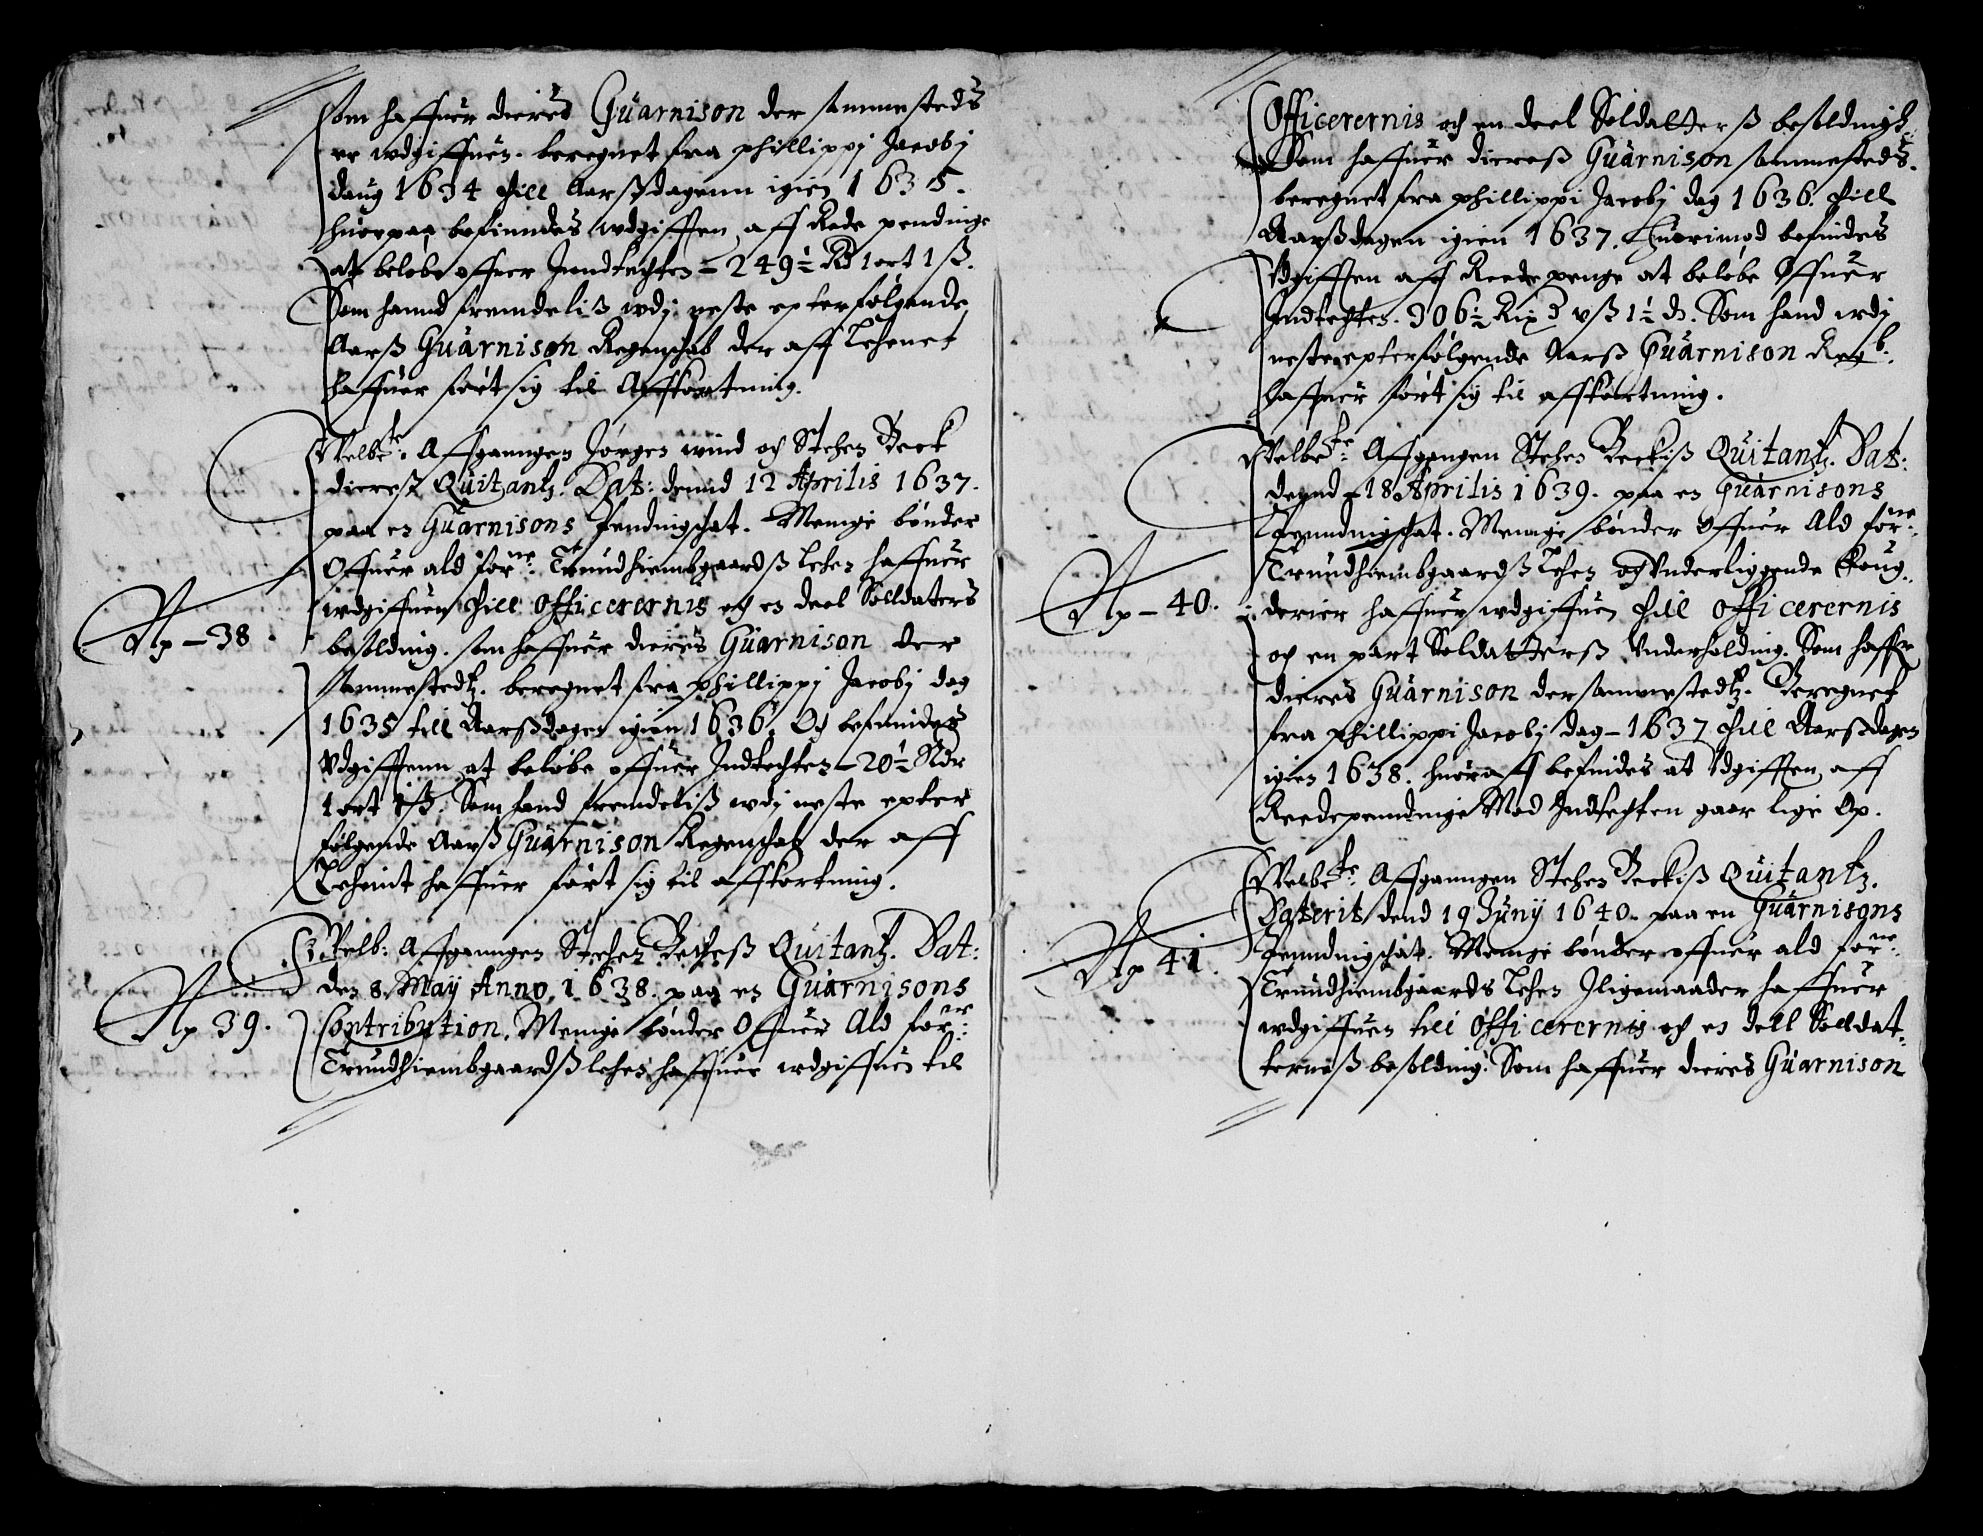 som haffuer dieris Guarnison der sammesteds
er wdgiffuen. beregnet fra phillippj Jacobj
daug 1634 thill Aarßdagenn igien 1635.
huorpaa befinndes wdgifften aff Rede pendinge
at beløbe offuer Inndtechten = 249½ Rd 1 ort 1 ß.
Som hannd fremdelis wdj neste epterfølgende
Aarß Guarnison Regenschab der aff Lehenet
haffuerført sig til Affkortning.
Velbte. Affganngen Jørgen wind och Stehen Beck
dieres Quitantz. Dat: dennd 12 Aprilis 1637.
paa en Guarnisons Pendingschat. Menige bønder
Offuer ald forne. Trundhiembgaardß Lehen haffuer
wdgiffuen thill officerernis och en deel Solldaters
Np – 38
besolding. som haffuer dieris Guarnison der
sammestedtz. beregnet fra phillippj Jacobj dag
1635 till Aarßdagen igien 1636. Och befinndes
Vdgifftenn at beløbe offuer Indtechten – 20½ Rdr
1 ort 1 ß. Som hand fremdeliß wdj neste epter
følgende Aarß Guarnison Regenschab der aff
Lehenit haffuer ført sig til affkortning.
Velb: Affganngen Stehen Bechß Quitantz. Dat:
den 8 Maij Anno 1638. paa en Guarnisons
Np 39.
Contribution. Menige bønder Offuer Ald forne:
Trundhiembgaardß lehen haffuer wdgiffuen til
Officerernis och en deel Soldatterß besolding
Som haffuer diereß Guarnison sammesteds.
beregnet fra phillippi Jacobj dag 1636. thill
Aarßdagen igien 1637. Huorimod befindes
Vdgifften aff Reede penge at beløbe Offuer
Indtechten. 306½ Rix d v ß 1½ d. Som hand wdj
neste epterfølgende Aarß Guarnison Regb:
haffuer ført sig til affkortning.
Velbte: Affgangen Stehen Beckiß Quitantz. Dat:
dennd – 18 Aprilis 1639. paa en Guarnisons
Penndingschat. Menige bønder Offuer Ald forne:
Trundhiembgaardß Lehen och Vnderliggende Foug-
Np – 40.
derier haffuer wdgiffuen thill officerernis
och en part Soldatterß Vnderholding. Som haffer
dieres Guarnison der sammestedtz. Beregnet
fra phillippi Jacobj dag – 1637 thill Aarßdagen
igien 1638. huoraff befindes at Vdgifften aff
Reedepenndinge Mod Indtechten gaar lige Op.
Velbte: Affganngen Stehen Beckiß Quitantz.
Daterit dend 19 Junij 1640. paa en Guarnisons
Np 41.
Penndingschat. Menige bønder offuer ald forne:
Trundhiembgaards Lehen Jligemaader haffuer
wdgiffuen till officerernis och en dell Soldat-
terniß besolding. Som haffuer dieres Guarnison